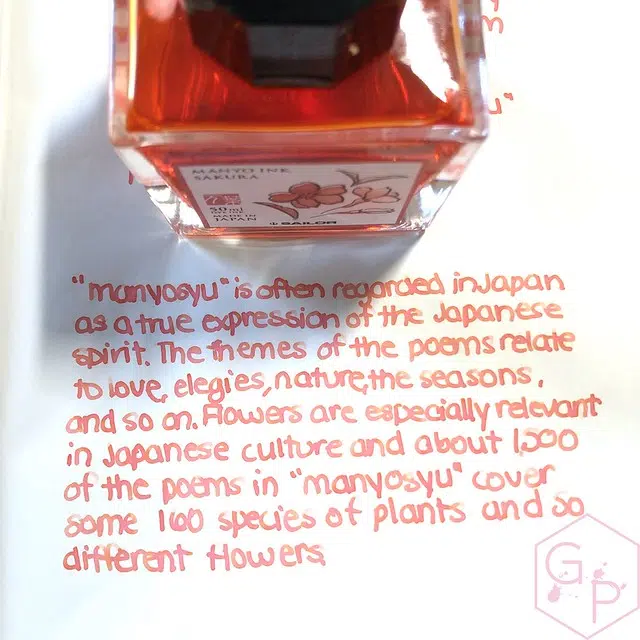 MANYO INK
SAKURA
50ml
MADE IN
JAPAN
SAILOR
"manyosyu" is often regarded in Japan
as a true expression of the Japanese
spirit. The themes of the poems relate
to love, elegies, nature, the seasons,
and so on. Flowers are especially relevant
in Japanese culture and about 1,500
of the poems in "manyosyu" cover
some 160 species of plants and so
different flowers.
GP